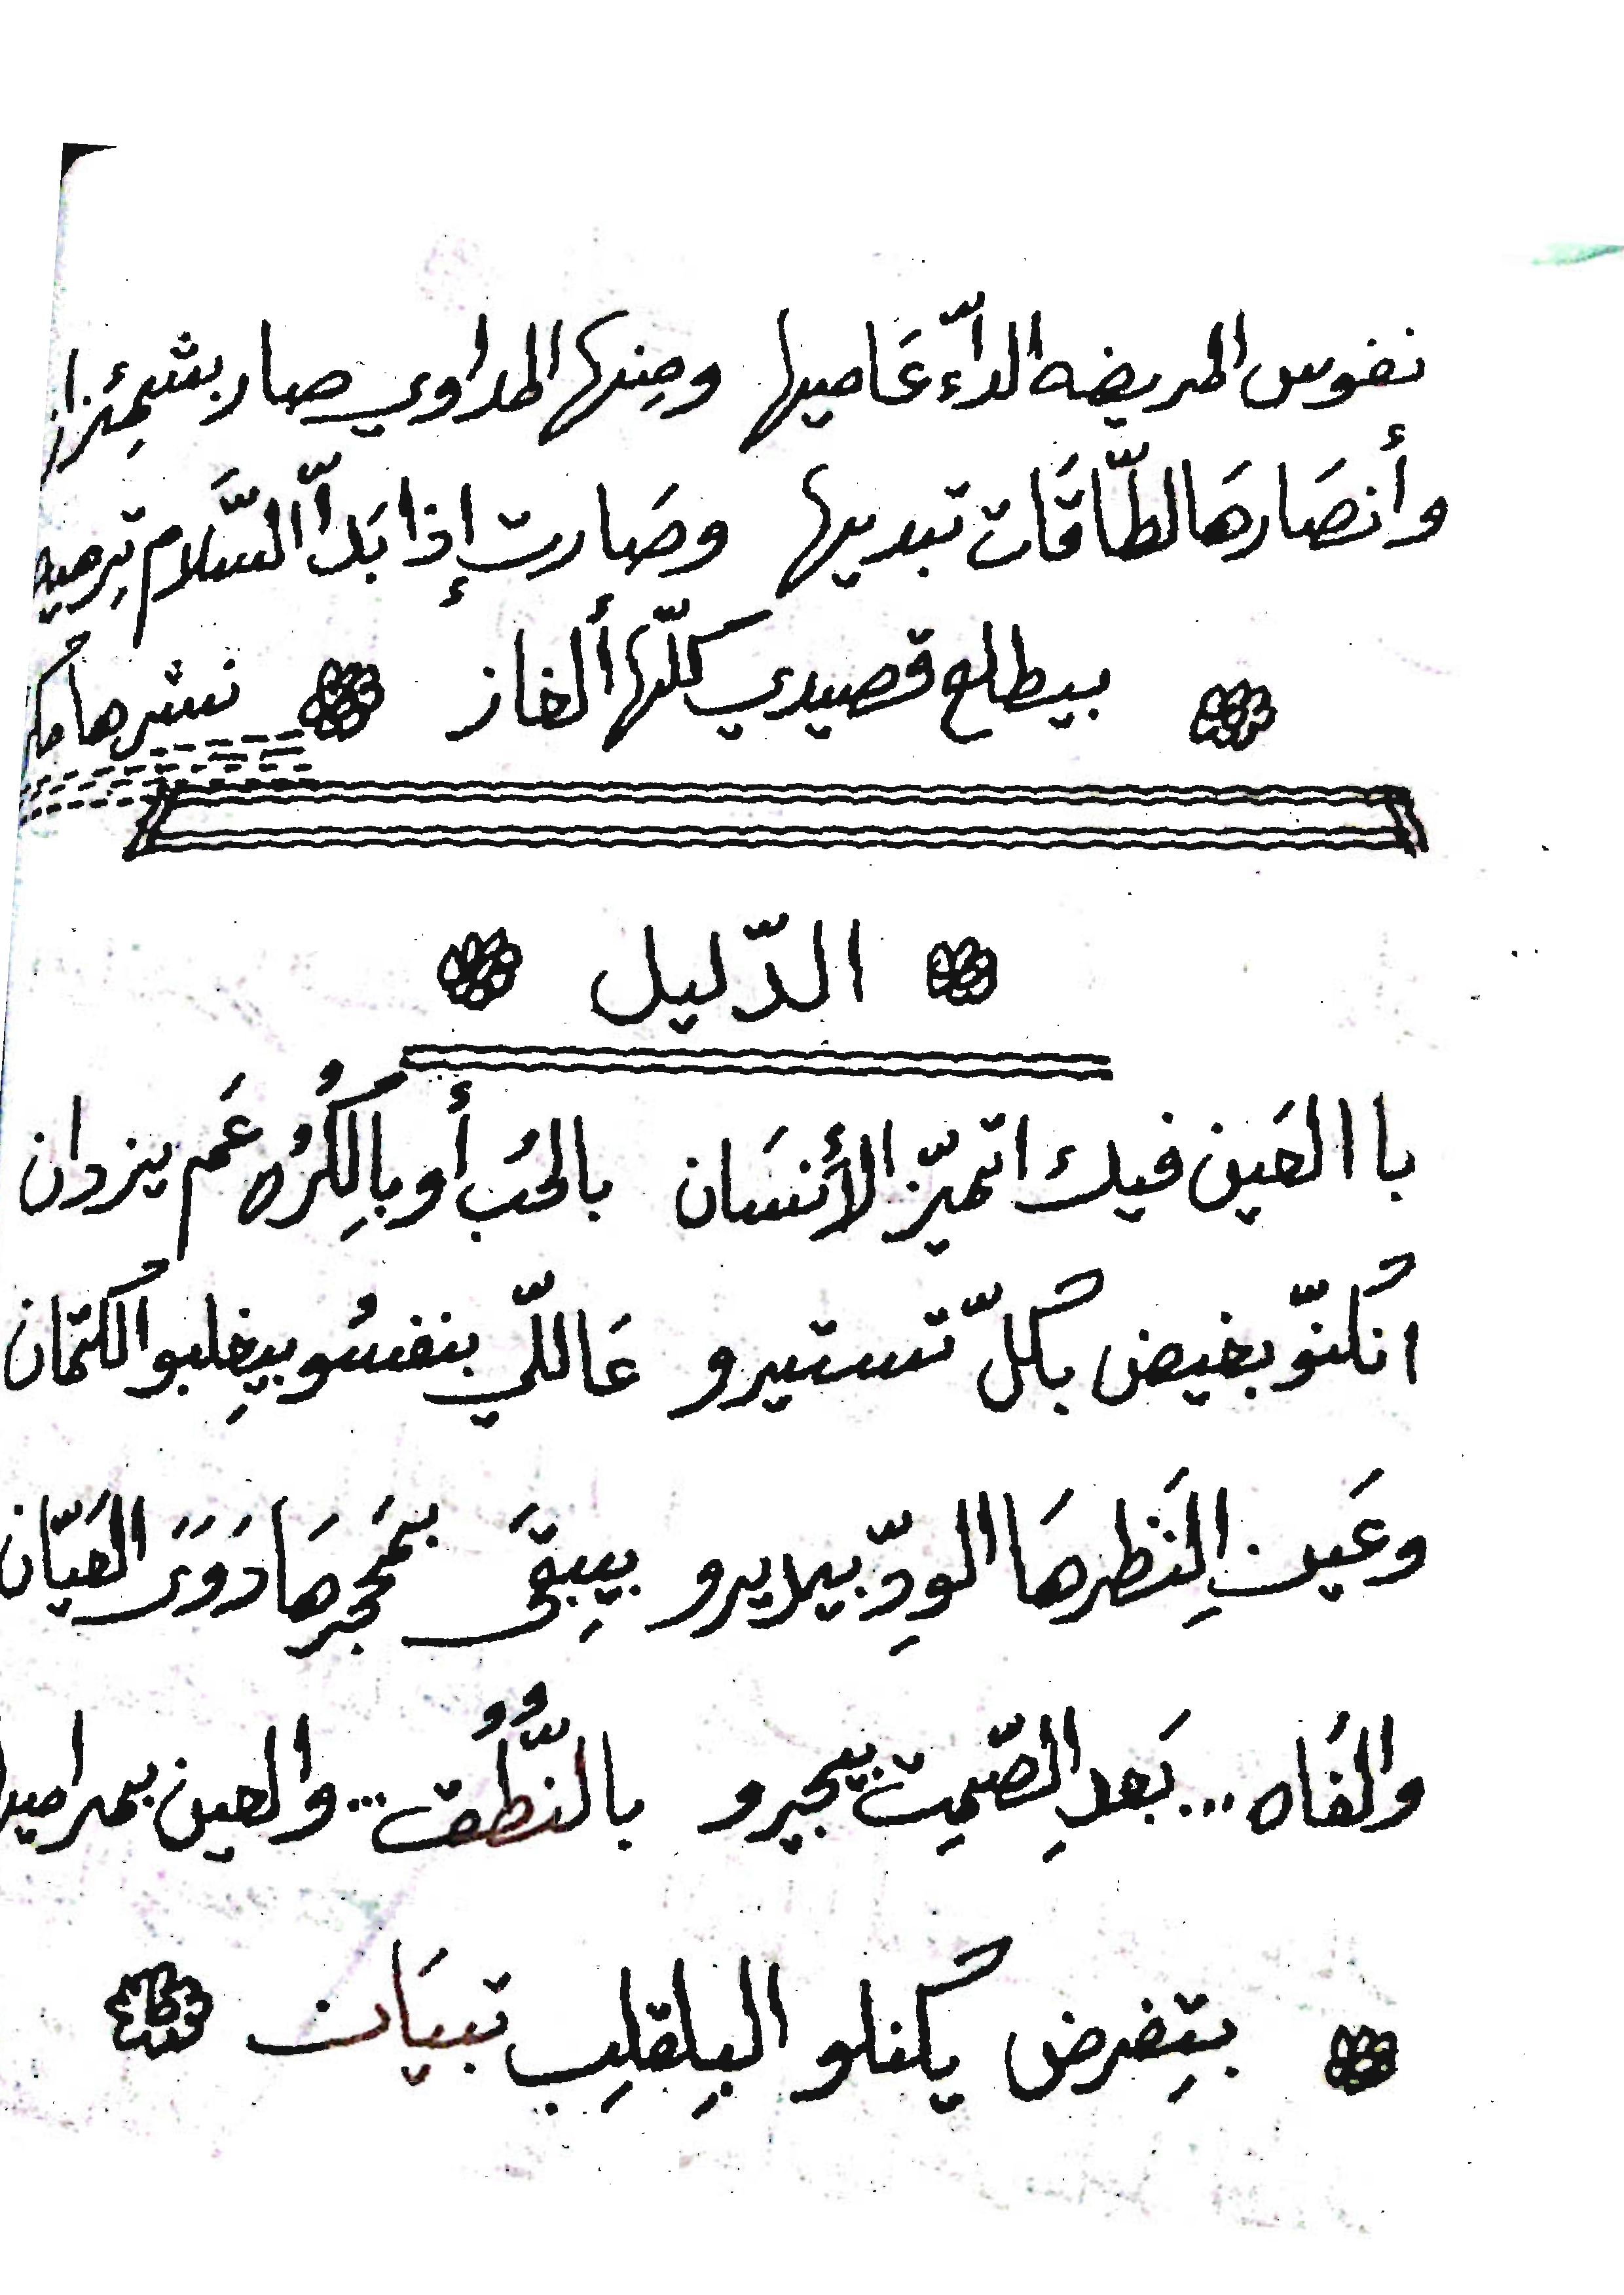 نفوس المريضه الدآّء عَاصيها ومِنها المداوي صار بشمِئزاز
وأنصَارهَا لطّاقَات تبديها وصَارت إذا بَدآّ السَّلام تِرميه
بيطلع قصيدي كلّها ألغاز نشرها
الدّليل
با العَين فيك اتميّز الأنسَان بالحُب أو بالِكُرُه عَم يزدان
انكنّو بغيض بكلّ تستيرو عَاللّي بنفسُو بيغِلبو الكتمان
وعَين لِنَظرهَا الودِّ بيدايرو بيِبقىَ بمَحجرهَا دَوَىً العَيّان
والفَاه ... بَعدِ الصّمِت بيجبرو بالنُّطُق ... والعين
بتِفرض يكنلو البِلقلِب تبيَان